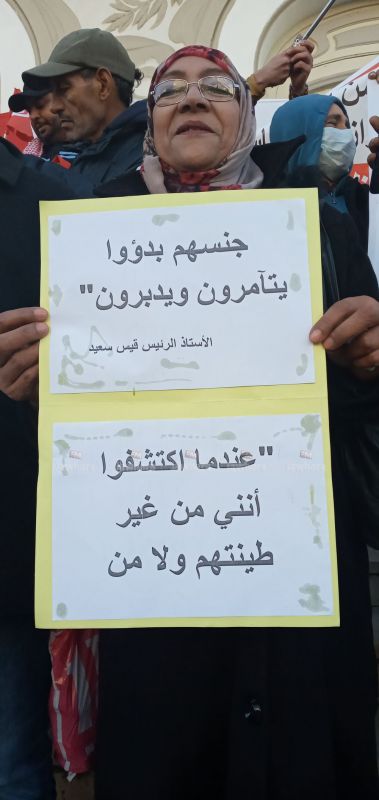 جنسهم بدؤوا
يتآمرون ويدبرون"
الأستاذ الرئيس قيس سعيد
"عندما اكتشفوا
أنني من غير
طينتهم ولا من